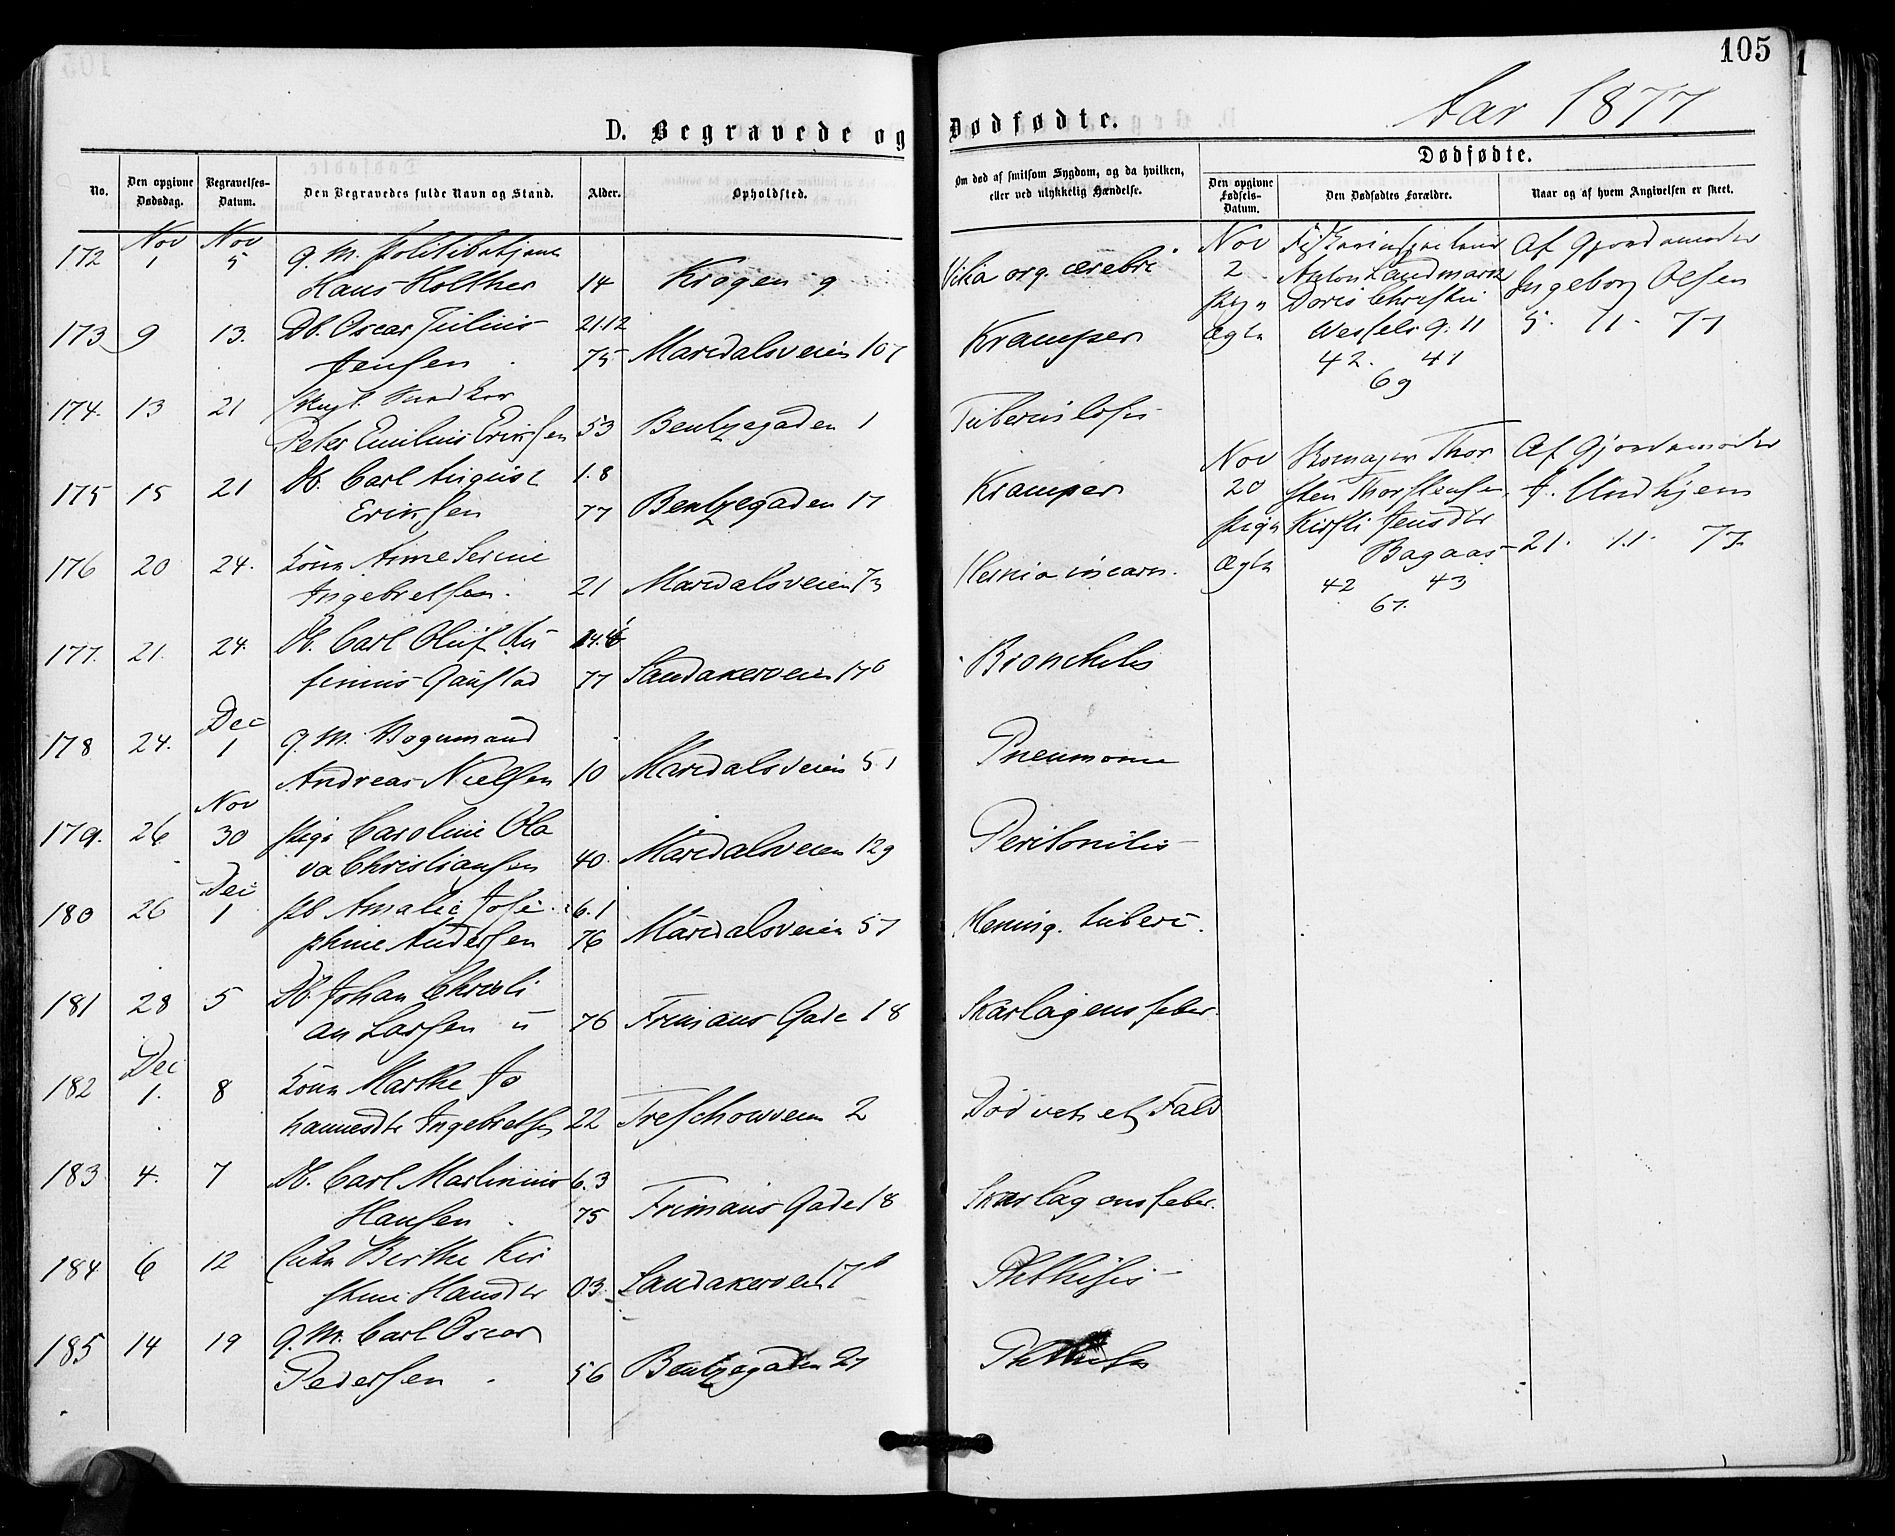 105
Aar 1877
D. Begravede og Dødfødte.
No. Den opgivne Dødsdag. Begravelses-Datum. Den Begravedes fulde Navn og Stand. Alder. Opholdsted.
Om død af smitsom Sygdom, og da hvilken, eller ved ulykkelig Hændelse.
Dødfødte.
Den opgivne Fødsels-Datum. Den Dødfødtes Forældre. Naar og af hvem Angivelsen er skeet.
172 Nov 1 Nov 5 g. M. Politibetjent
Hans Holther 14 Krogen 9 Vitia org. cerebri
173 9 13. Db. Oscar Julius 21.12
Jensen 75 Maridalsveien 107 Kramper
174. 13 21 Snedker
Peter Emilius Eriksen 53 Bentzegaden 1 Tuberculosis
175 15 21 Db. Carl August 1.8
Eriksen 77 Bentzegaden 17 Kramper
176 20 24. Kone Anne Serine
Ingebretsen. 21 Maridalsveien 73 Hernia incarc.
177. 21. 24. Db. Carl Oluf
Gaustad 77 Sandakerveien 17b Bronchitis
178 24. Dec 1 g. M. Vognmand
Andreas Nielsen 10 Maridalsveien 51 Pneumonie
179. 26 Nov 30 Pige Caroline Ola
va Christiansen 40. Maridalsveien 129 Peritonitis
180 26 Dec 1 Pb Amalie Jose 6.1
phine Andersen 76 Maridalsveien 57 Mening. tuberc.
181 28 5 Db. Johan Christi
an Larsen u 76 Frimans Gade 18 Skarlagensfeber.
182 Dec 1. 8 Kone Marthe Jo
hannesdtr Ingebretsen 22 Treschowveien 2 Død ved et Fald
183 4. 7 Db. Carl Martinius 6.3
Hansen 75 Frimans Gade 18 Skarlagensfeber.
184 6 12 Enke Berthe Kir
stine Hansdtr 03. Sandakerveien 17b Phthisis
185 14 19 g. M. Carl Oscar
Pedersen 56 Bentzegaden 27 Phthisis
Nov Fiskeriinspecteur Af Gjordemoder
2 Anton Landmark Ingeborg Olsen
Pige Doris Christie 5. 11. 77
Ægte Wessels g. 11
42. 41
69
Nov Skomager Thor Af Gjordemoder
20 sten Thorstensen J. Undhjem
Pige Kirsti Jensdtr
Ægte Bagaas 21. 11. 77.
42 43
67.